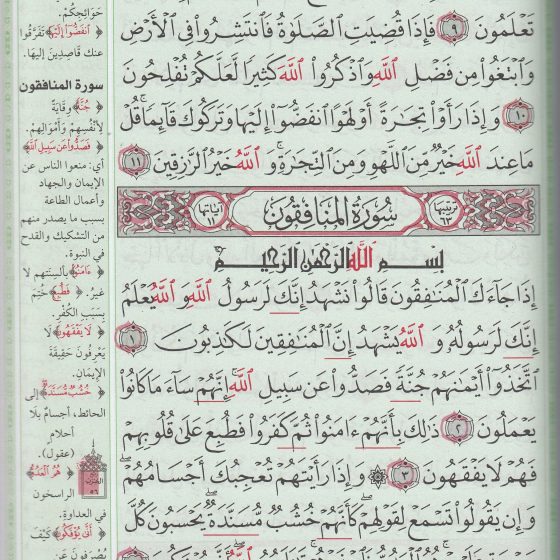 تَعْلَمُونَ ٩ فَإِذَا قُضِيَتِ ٱلصَّلَوٰةُ فَٱنتَشِرُوا۟ فِى ٱلْأَرْضِ
وَٱبْتَغُوا۟ مِن فَضْلِ ٱللَّهِ وَٱذْكُرُوا۟ ٱللَّهَ كَثِيرًا لَّعَلَّكُمْ تُفْلِحُونَ
١٠ وَإِذَا رَأَوْا۟ تِجَـٰرَةً أَوْ لَهْوًا ٱنفَضُّوٓا۟ إِلَيْهَا وَتَرَكُوكَ قَآئِمًا ۚ قُلْ
مَا عِندَ ٱللَّهِ خَيْرٌ مِّنَ ٱللَّهْوِ وَمِنَ ٱلتِّجَـٰرَةِ ۚ وَٱللَّهُ خَيْرُ ٱلرَّٰزِقِينَ ١١
ترتيبها ٦٣ سُورَةُ المُنَافِقُون آياتها ١١
بِسْمِ ٱللَّهِ ٱلرَّحْمَـٰنِ ٱلرَّحِيمِ
إِذَا جَآءَكَ ٱلْمُنَـٰفِقُونَ قَالُوا۟ نَشْهَدُ إِنَّكَ لَرَسُولُ ٱللَّهِ ۗ وَٱللَّهُ يَعْلَمُ
إِنَّكَ لَرَسُولُهُۥ وَٱللَّهُ يَشْهَدُ إِنَّ ٱلْمُنَـٰفِقِينَ لَكَـٰذِبُونَ ١
ٱتَّخَذُوٓا۟ أَيْمَـٰنَهُمْ جُنَّةً فَصَدُّوا۟ عَن سَبِيلِ ٱللَّهِ ۚ إِنَّهُمْ سَآءَ مَا كَانُوا۟
يَعْمَلُونَ ٢ ذَٰلِكَ بِأَنَّهُمْ ءَامَنُوا۟ ثُمَّ كَفَرُوا۟ فَطُبِعَ عَلَىٰ قُلُوبِهِمْ
فَهُمْ لَا يَفْقَهُونَ ٣ ۞ وَإِذَا رَأَيْتَهُمْ تُعْجِبُكَ أَجْسَامُهُمْ ۖ
وَإِن يَقُولُوا۟ تَسْمَعْ لِقَوْلِهِمْ ۖ كَأَنَّهُمْ خُشُبٌ مُّسَنَّدَةٌ ۖ يَحْسَبُونَ كُلَّ
حَوَائِجِكُمْ.
﴿ٱنفَضُّوٓا۟ إِلَيْهَا﴾ تَفَرَّقُوا
عنك قاصِدِينَ إليها.
سورة المنافقون
﴿جُنَّةً﴾ وِقَايَةً
لأَنْفُسِهِمْ وَأَمْوَالِهِمْ.
﴿فَصَدُّوا۟ عَن سَبِيلِ ٱللَّهِ﴾
أي: منعوا الناس عن
الإيمان والجهاد
وأعمال الطاعة
بسبب ما يصدر منهم
من التشكيك والقدح
في النبوة.
﴿ءَامَنُوا۟﴾ بألسنتهم لا
غير. ﴿فَطُبِعَ﴾ خُتِمَ
بِسَبَبِ الكُفْرِ.
﴿لَا يَفْقَهُونَ﴾ لَا
يَعْرِفُونَ حَقِيقَةَ
الإِيمَانِ.
﴿خُشُبٌ مُّسَنَّدَةٌ﴾ إلى
الحائط، أجسامٌ بلا
أحلام
(عقول).
﴿هُمُ ٱلْعَدُوُّ﴾
الراسخون
في العداوة.
﴿أَنَّىٰ يُؤْفَكُونَ﴾ كَيْفَ
يُصْرَفُونَ عَنِ